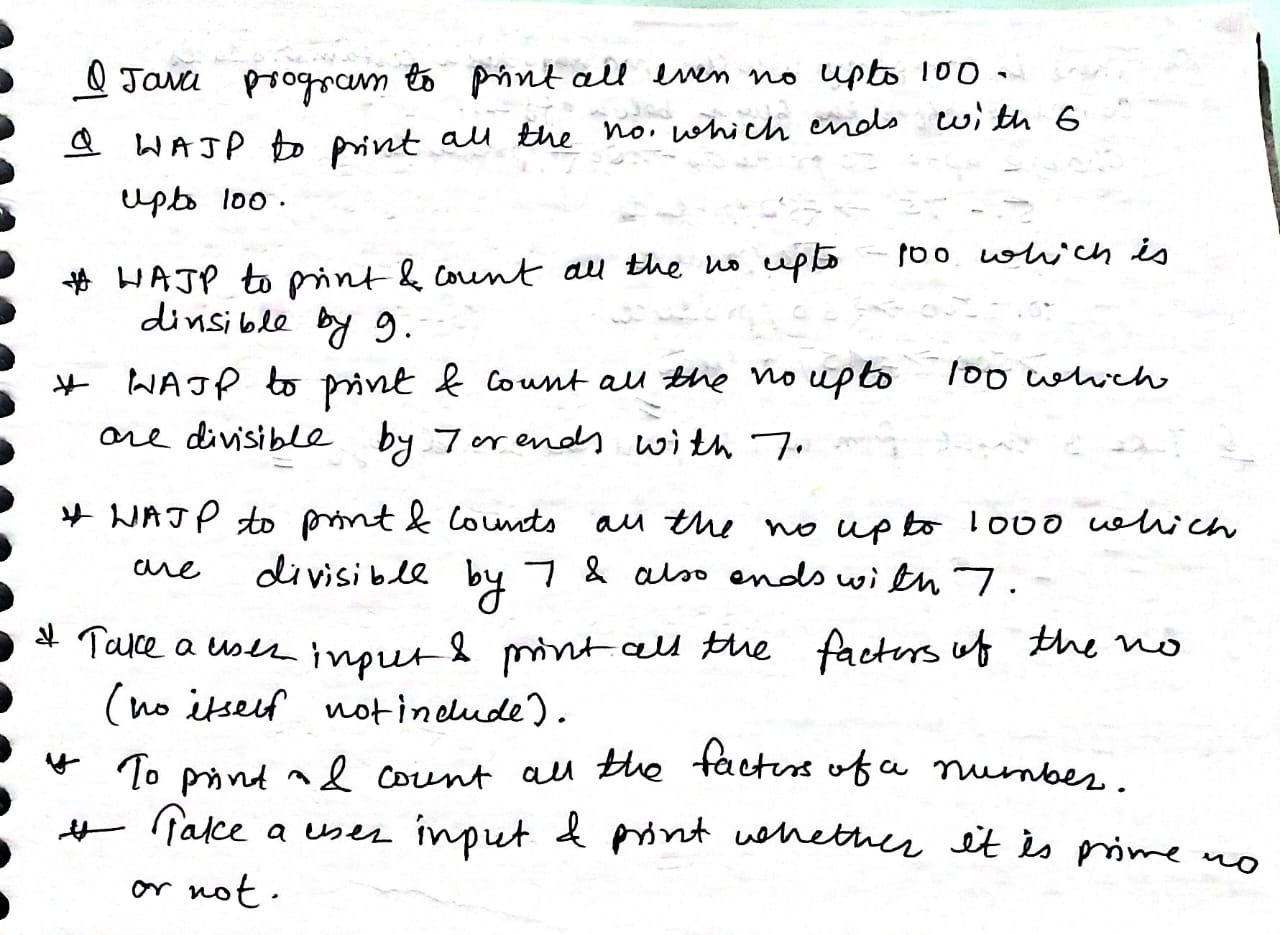 Q Java program to print all even no upto 100.
Q WAJP to print all the no. which ends with 6
upto 100.
* WAJP to print & count all the no upto 100 which is
divisible by 9.
* WAJP to print & count all the no upto 100 which
are divisible by 7 or ends with 7.
* WAJP to print & counts all the no upto 1000 which
are divisible by 7 & also ends with 7.
* Take a user input & print all the factors of the no
(no itself not include).
* To print & count all the factors of a number.
* Take a user input & print whether it is prime no
or not.